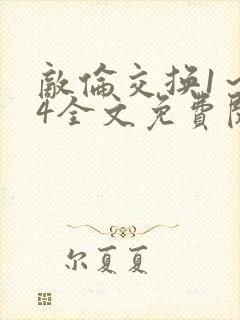 敵倫交換1一
4全文免費
尔夏夏